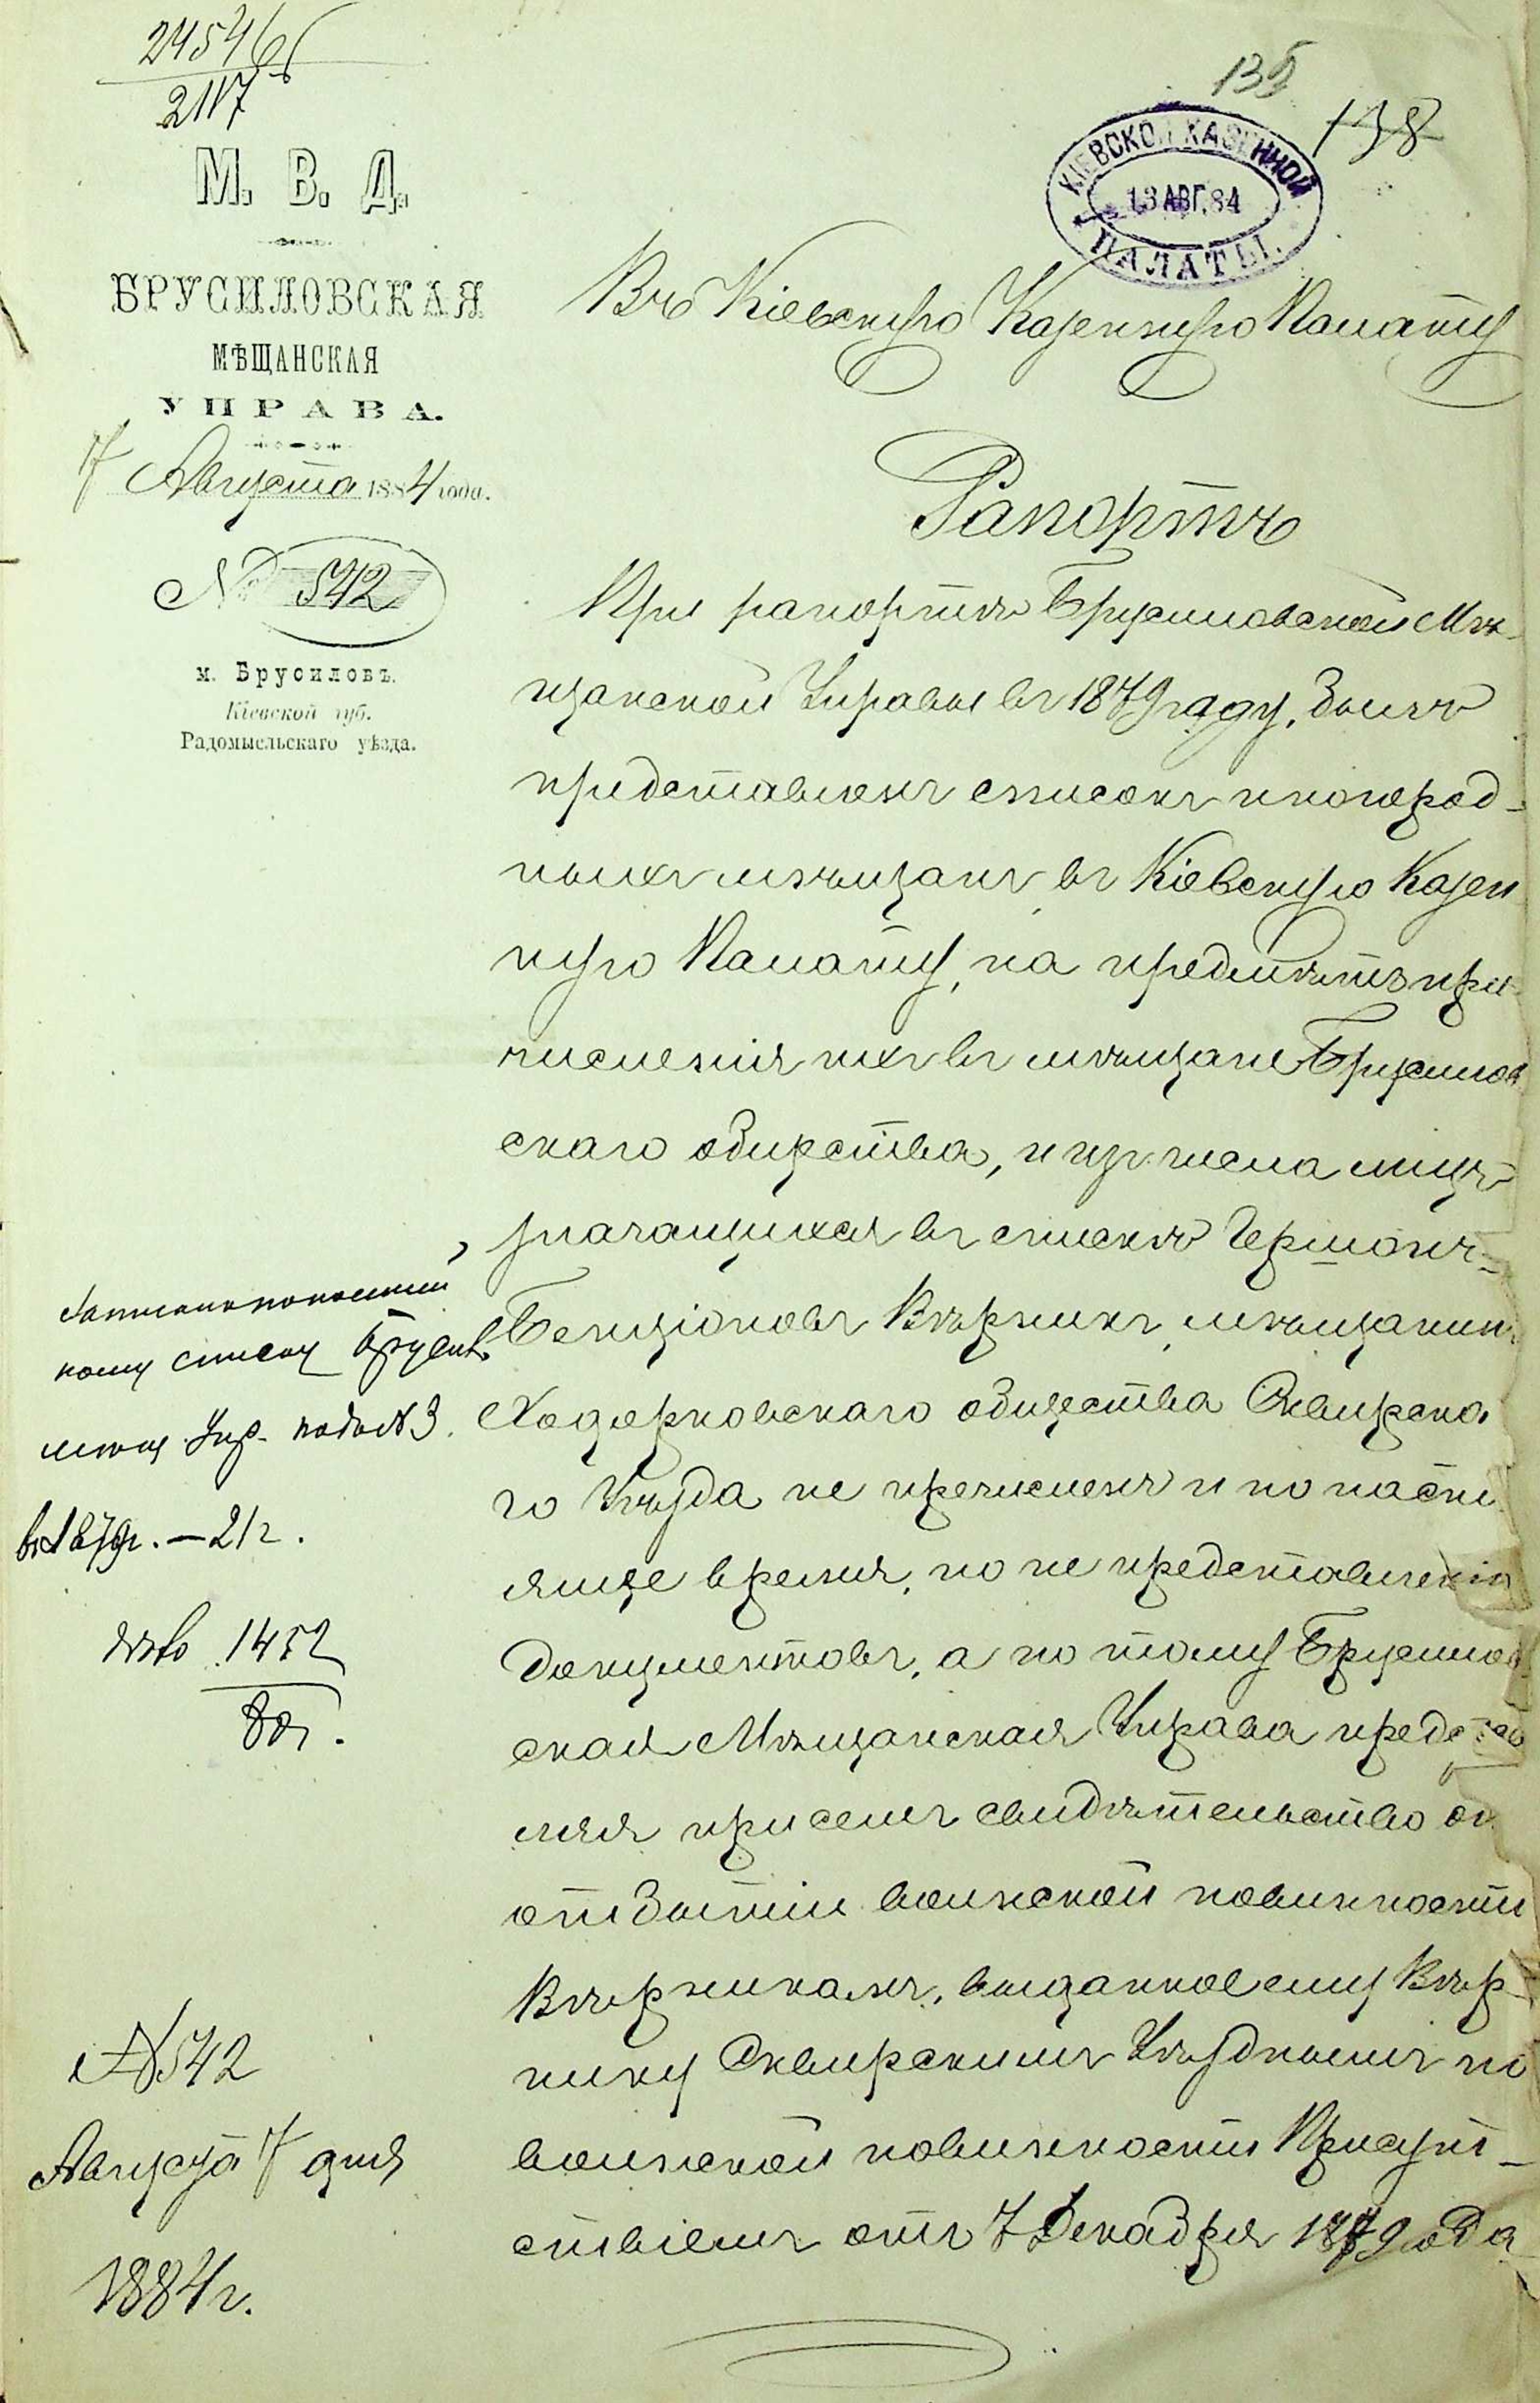 24546
2117
М. В. Д.
БРУСИЛОВСКАЯ
МѢЩАНСКАЯ
УПРАВА.
7 Августа 1884 года.
№ 542
м. Брусиловъ.
Кіевской губ.
Радомысльскаго уѣзда.
135
138
КІЕВСКОЙ КАЗЕННОЙ
13 АВГ. 84
ПАЛАТЫ.
Въ Кіевскую Казенную Палату
Рапортъ
При рапортѣ Брусиловской Мѣ-
щанской Управы въ 1879 году, былъ
представленъ списокъ иногород-
ныхъ мѣщанъ въ Кіевскую Казен
ную Палату, на предметъ при-
численія ихъ въ мѣщане Брусилов
скаго общества, и изъ числа лицъ
значащихся въ спискѣ Гершонъ-
Бенціоновъ Вѣрникъ, мѣщанинъ
Ходорковскаго общества Сквирска
го Уѣзда не пречисленъ и по насто
ящее время, по не представленію
документовъ, а по тому Брусилов
ская Мѣщанская Управа представ
ляя при семъ свидѣтельство об
отбытіи воинской повинности
Вѣрникамъ, выданное ему Вѣр-
нику Сквирскимъ Уѣзднымъ по
воинской повинности Присут-
ствіемъ отъ 7 Декабря 1879 года
кому списку Брусил.
Упр. подъ № 3.
въ 1879г. — 21 г.
1452
80г.
№ 542
Августа 7 дня
1884 г.